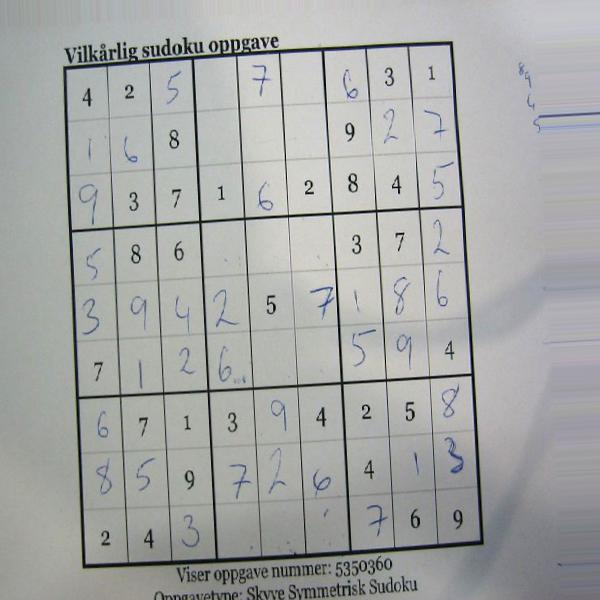 Vilkårlig sudoku oppgave
4 2 5 7 6 3 1
1 6 8 9 2 7
9 3 7 1 6 2 8 4 5
5 8 6 3 7 2
3 9 4 2 5 7 1 8 6
7 1 2 6 5 9 4
6 7 1 3 9 4 2 5 8
8 5 9 7 2 6 4 1 3
2 4 3 7 6 9
Viser oppgave nummer: 5350360
Oppgavetype: Skyve Symmetrisk Sudoku